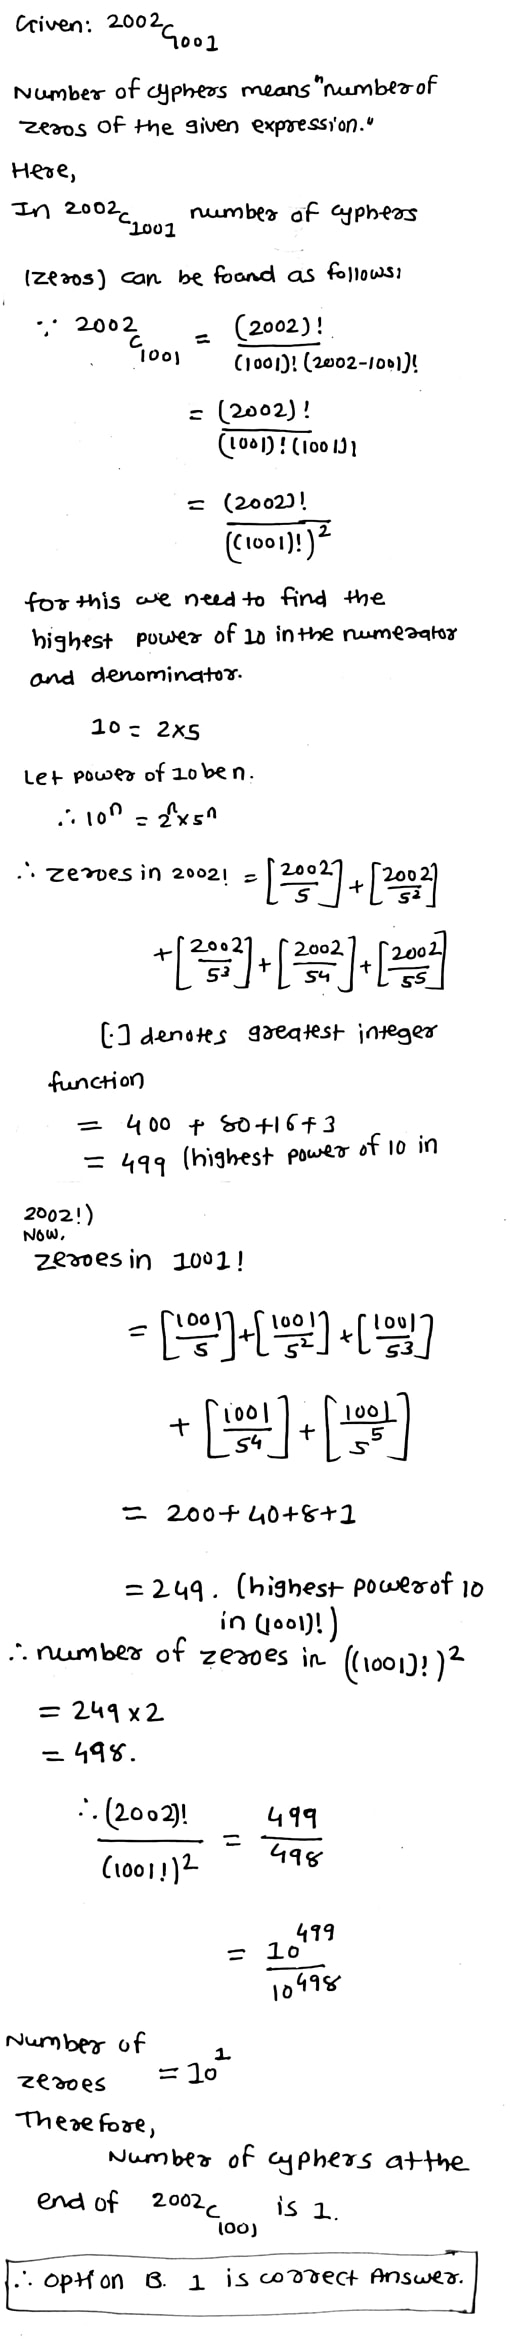 Given: 2002C1001
Number of cyphers means "number of
zeros of the given expression."
Here,
In 2002C1001 number of cyphers
(zeros) can be foand as follows:
∵ 2002C1001 = (2002)! / (1001)! (2002-1001)!
= (2002)! / (1001)! (1001)!
= (2002)! / ((1001)!)²
for this we need to find the
highest power of 10 in the numerator
and denominator.
10 = 2×5
Let power of 10 be n.
∴ 10ⁿ = 2ⁿ×5ⁿ
∴ zeroes in 2002! = [2002/5] + [2002/5²]
+ [2002/5³] + [2002/5⁴] + [2002/5⁵]
[·] denotes greatest integer
function
= 400 + 80+16+3
= 499 (highest power of 10 in
2002!)
Now,
zeroes in 1001!
= [1001/5] + [1001/5²] + [1001/5³]
+ [1001/5⁴] + [1001/5⁵]
= 200+ 40+8+1
= 249. (highest power of 10
in (1001)!)
∴ number of zeroes in ((1001)!)²
= 249 × 2
= 498.
∴ (2002)! / (1001!)² = 499 / 498
= 10⁴⁹⁹ / 10⁴⁹⁸
Number of
zeroes = 10¹
Therefore,
Number of cyphers at the
end of 2002C1001 is 1.
∴ option B. 1 is correct Answer.